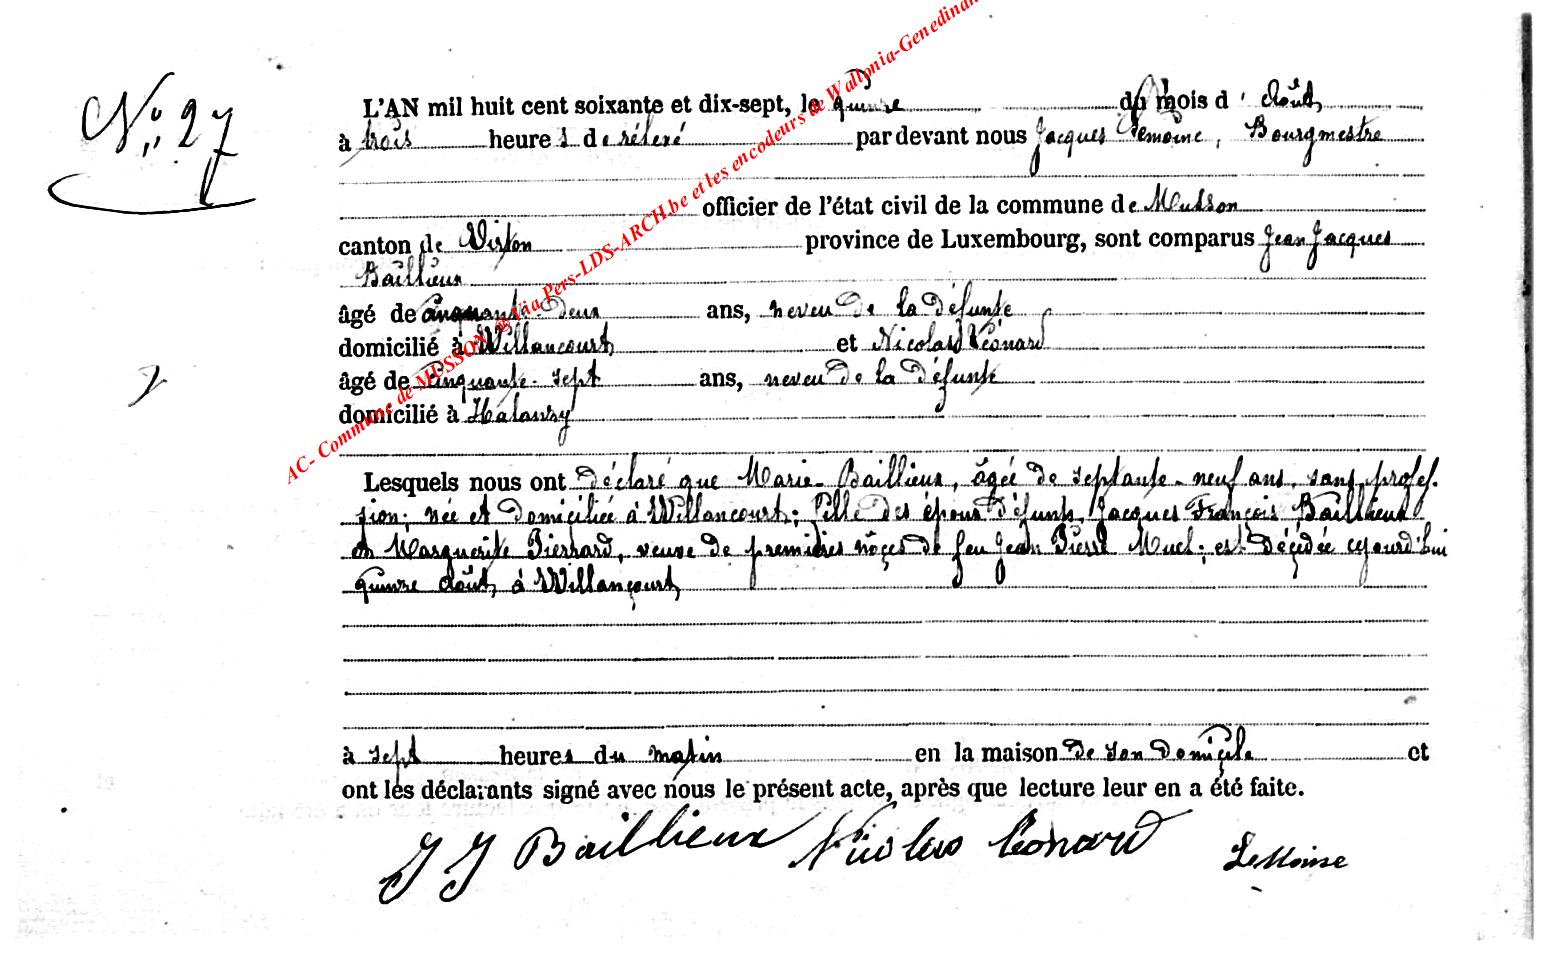 N° 27
L'AN mil huit cent soixante et dix-sept, le quinze du mois d'Août,
à trois heures de rélevé par devant nous Jacques Lemoine, Bourgmestre
officier de l'état civil de la commune de Musson
canton de Virton province de Luxembourg, sont comparus Jean Jacques
Baillieux
âgé de cinquante-deux ans, neveu de la défunte
domicilié à Willancourt et Nicolas Léonard
âgé de cinquante-sept ans, neveu de la défunte
domicilié à Halanzy
Lesquels nous ont déclaré que Marie Baillieux, âgée de septante-neuf ans, sans profes-
sion; née et domiciliée à Willancourt; fille des époux défunts, Jacques François Baillieux
et Marguerite Pierrard, veuve de premières nôces de feu Jean Pierre Muel; est décédée cejourd'hui
quinze Août, à Willancourt,
à sept heures du matin en la maison de son domicile et
ont les déclarants signé avec nous le présent acte, après que lecture leur en a été faite.
J J Baillieux Nicolas Léonard Lemoine
AC- Commune de MUSSON @ Via Pers-LDS-ARCH.be et les encodeurs de Wallonia-Genedinan